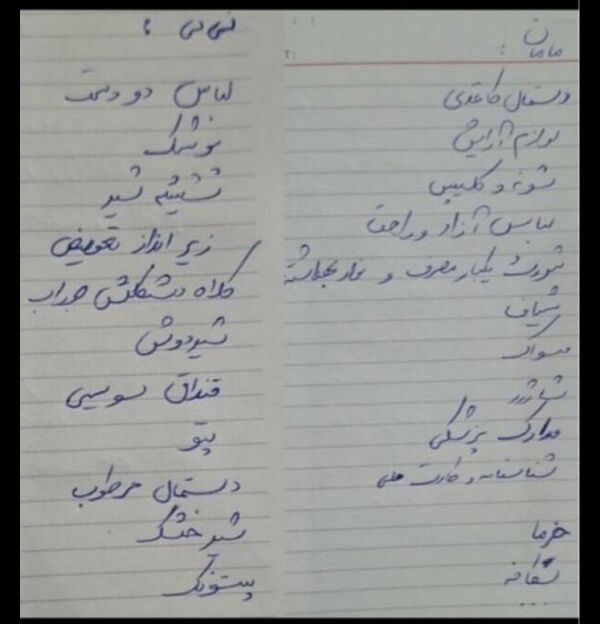 مامان :
دستمال کاغذی
لوازم آرایش
شونه و کلیپس
لباس آزاد و راحت
شورت یکبار مصرف و نوار بهداشتی
شیاف
مسواک
شارژر
مدارک پزشکی
شناسنامه و کارت ملی
خرما
...
نی نی :
لباس دو دست
پوشک
شیشه شیر
زیر انداز تعویض
کلاه دستکش جوراب
شیردوش
قنداق سوییسی
پتو
دستمال مرطوب
شیر خشک
پستونک